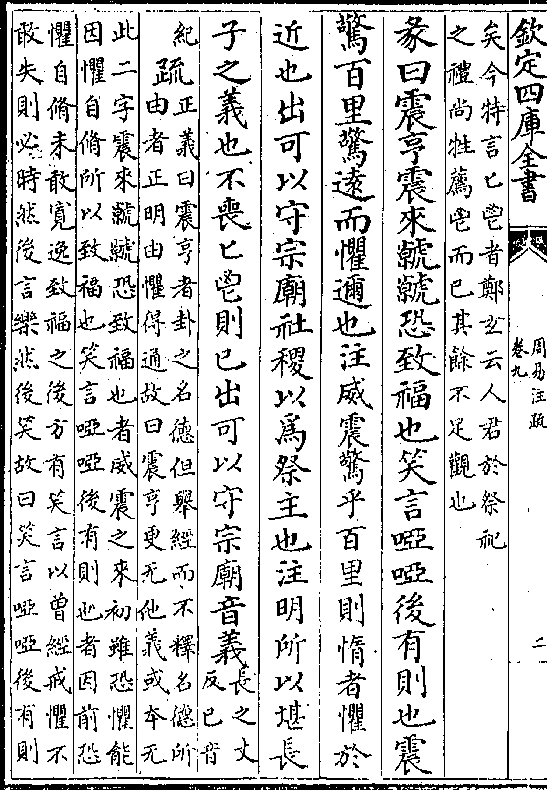 欽定四庫全書
周易注疏
卷九
二
矣今特言匕鬯者鄭𤣥云人君於祭祀
之禮尚牲薦鬯而已其餘不足觀也
彖曰震亨震來虩虩恐致福也笑言啞啞後有則也震
驚百里驚逺而懼邇也注威震驚乎百里則惰者懼於
近也出可以守宗廟社稷以為祭主也注明所以堪長
子之義也不喪匕鬯則已出可以守宗廟音義長之丈
反已音
紀疏正義曰震亨者卦之名德但舉經而不釋名德所
由者正明由懼得通故曰震亨更无他義或本无
此二字震來虩虩恐致福也者威震之來初雖恐懼能
因懼自脩所以致福也笑言啞啞後有則也者因前恐
懼自脩未敢寛逸致福之後方有笑言以曽經戒懼不
敢失則必時然後言樂然後笑故曰笑言啞啞後有則